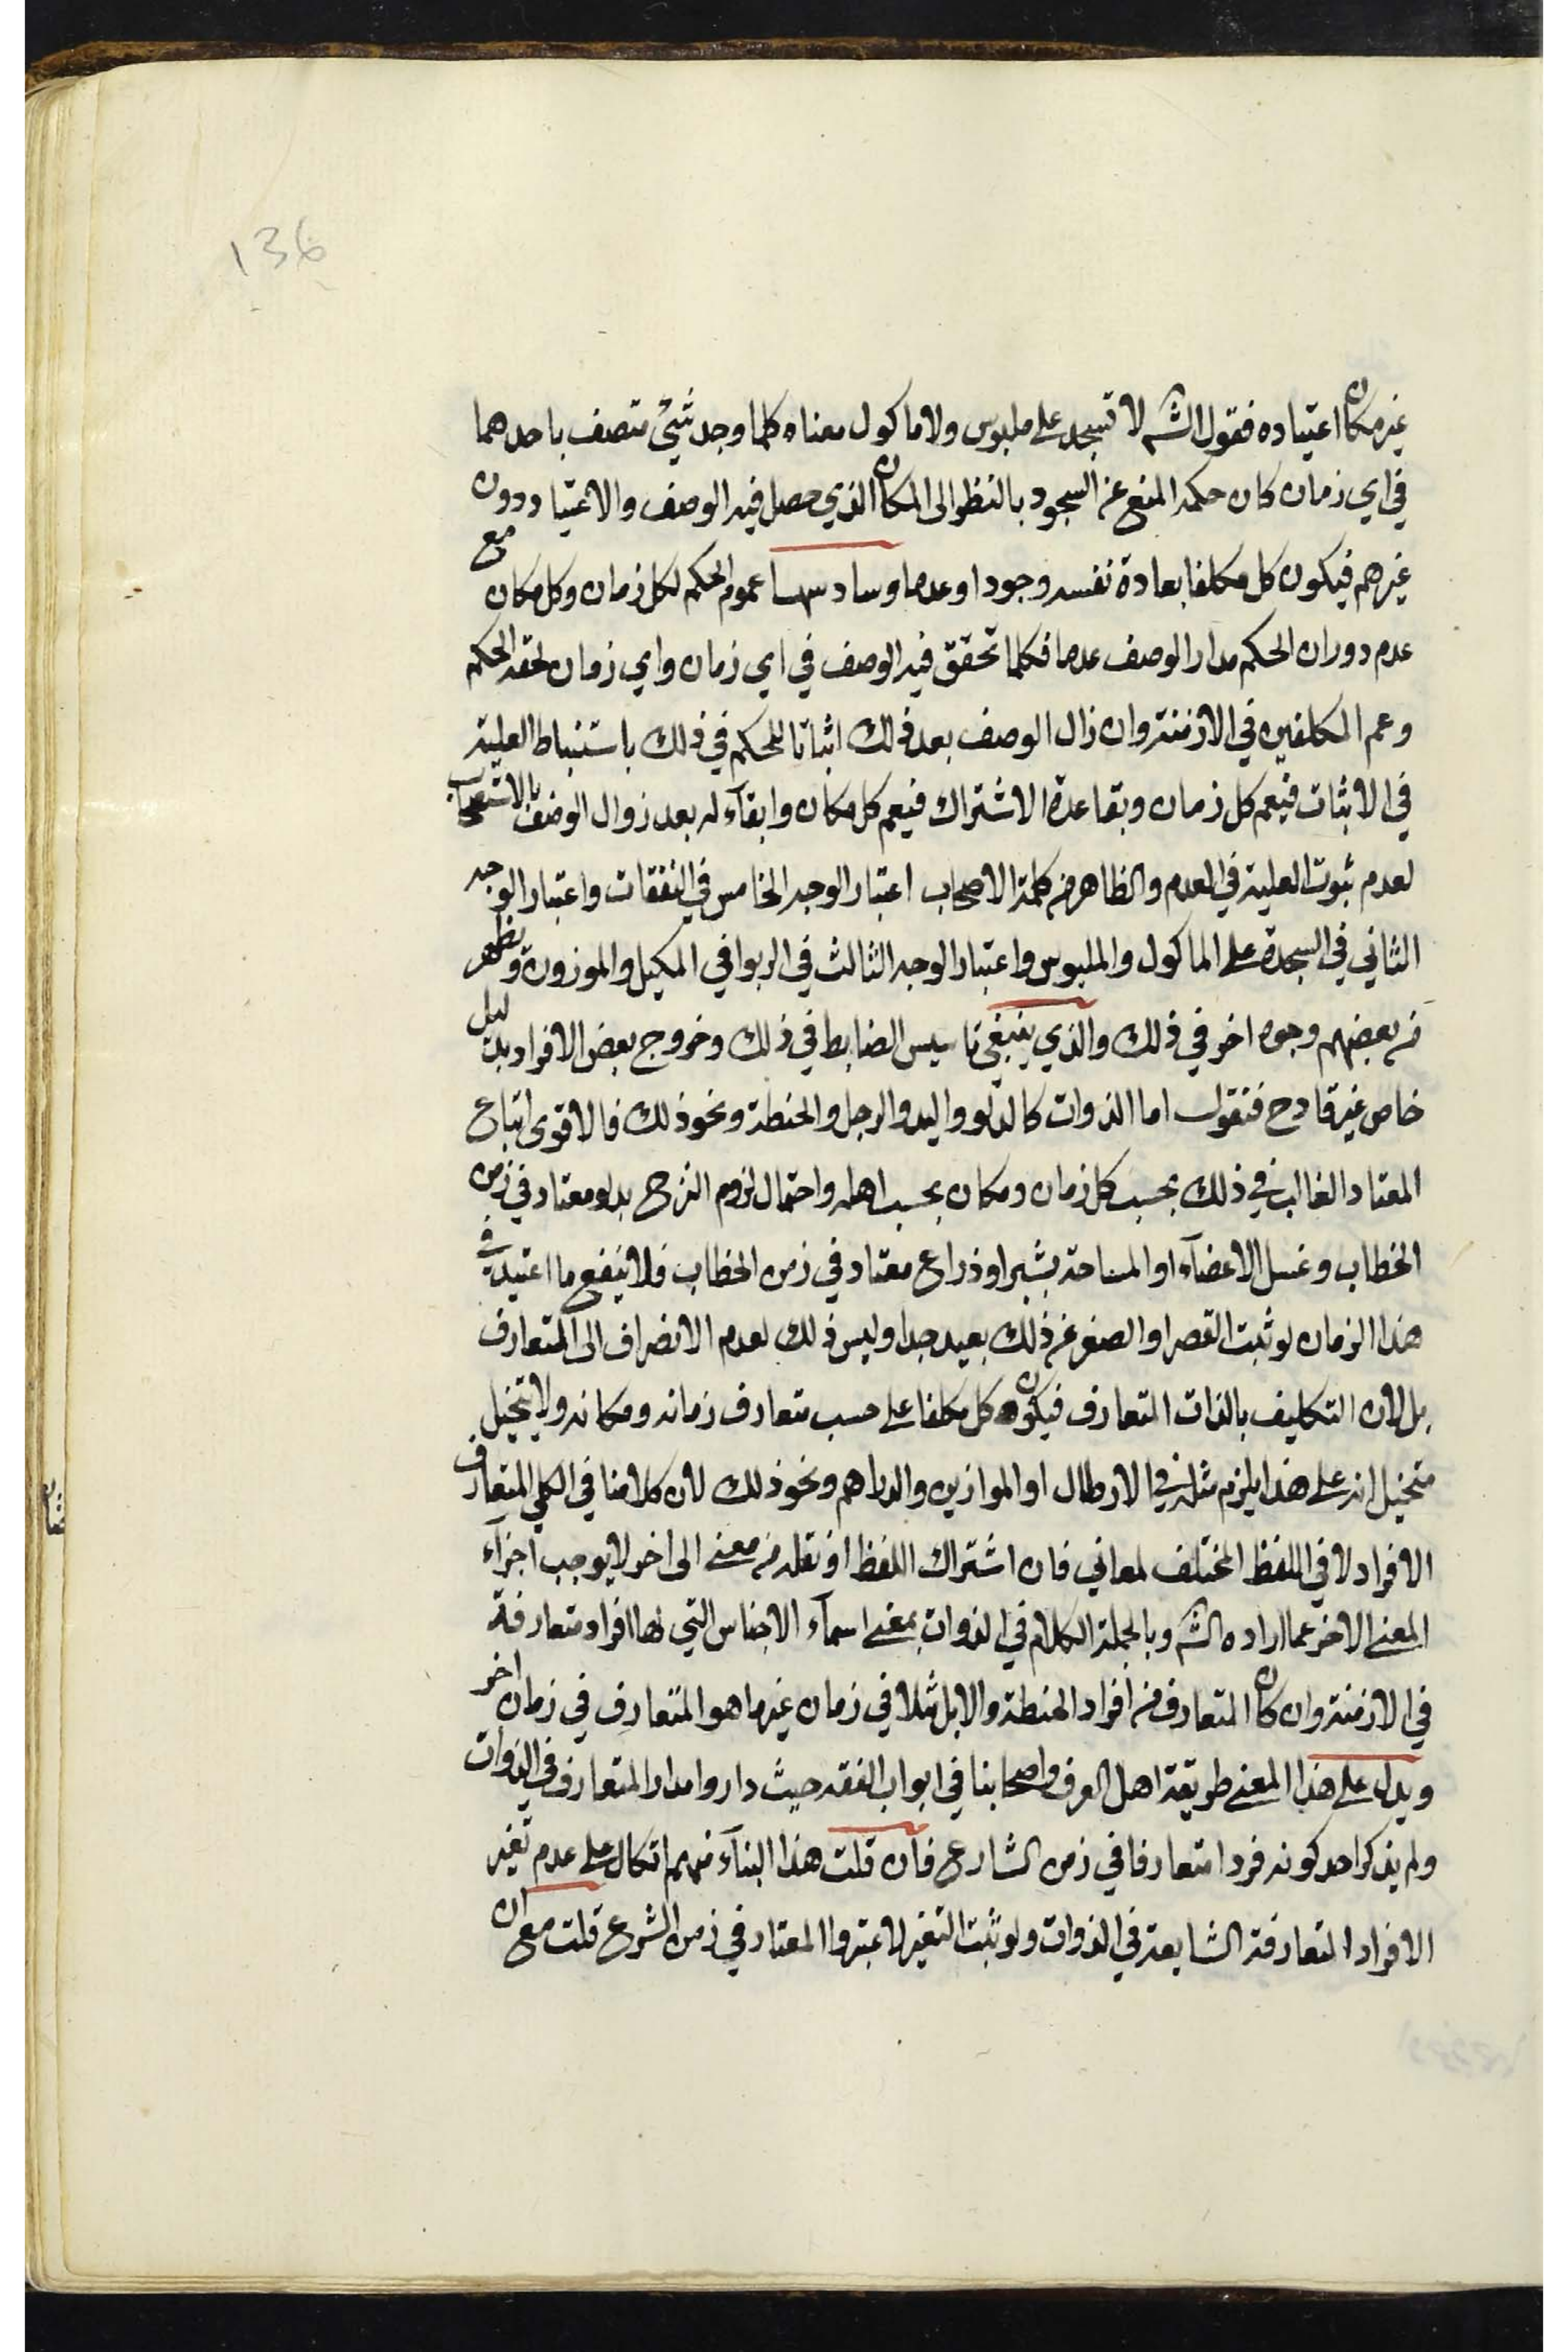 136
غير مكان اعتياده فقول الشه لا تسجد على ملبوس ولا ماكول معناه كلما وجد شئ متصف باحدهما
في اي زمان كان حكمه المنع عن السجود بالنظر الى المكان الذي حصل فيه الوصف والاعتياد دون
غيرهم فيكون كل مكلفا بعادة نفسه وجودا وعدما وسادسها عموم الحكم لكل زمان وكل مكان مع
عدم دوران الحكم مدار الوصف عدما فكلما تحقق فيه الوصف في اي زمان واي زمان لحقه الحكم
وعم المكلفين في الازمنة وان زال الوصف بعد ذلك اثباتا للحكم في ذلك باستنباط العلية
في الاثبات فيعم كل زمان وبقاعدة الاشتراك فيعم كل مكان وابقآء له بعد زوال الوصف بالاستصحاب
لعدم ثبوت العلية في العدم والظاهر من كلمة الاصحاب اعتبار الوجه الخامس في النفقات واعتبار الوجه
الثاني في السجدة على الماكول والملبوس واعتبار الوجه الثالث في الربوا في المكيل والموزون ويظهر
من بعضهم وجوه اخر في ذلك والذي ينبغي تاسيس الضابط في ذلك وخروج بعض الافراد بدليل
خاص غير قادح فنقول اما الذوات كالدلو واليد والرجل والحنطة ونحو ذلك فالاقوى اتباع
المعتاد الغالب في ذلك بحسب كل زمان ومكان بحسب اهله واحتمال لزوم النزح بدلو معتاد في زمن
الخطاب وغسل الاعضآء او المساحة بشبر او ذراع معتاد في زمن الخطاب فلا ينفع ما اعتيد في
هذا الزمان لو ثبت القصر او الصغر عن ذلك بعيد جدا وليس ذلك لعدم الانصراف الى المتعارف
بل لان التكليف بالذات المتعارف فيكون كل مكلفا على حسب متعارف زمانه ومكانه ولا يتخيل
متخيل انه على هذا يلزم مثله في الارطال او الموازين والدراهم ونحو ذلك لان كلامنا في الكلي المتعارف
الافراد لا في اللفظ المختلف لمعاني فان اشتراك اللفظ او نقله من معنى الى اخر لا يوجب اجزآء
المعنى الاخر عما اراده الشه وبالجملة الكلام في الذوات بمعنى اسمآء الاجناس التي لها افراد متعارفة
في الازمنة وان كان المتعارف من افراد الحنطة والابل مثلا في زمان غير ما هو المتعارف في زمان اخر
ويدل على هذا المعنى طريقة اهل العرف واصحابنا في ابواب الفقه حيث داروا مدار المتعارف في الذوات
ولم يذكر احد كونه فردا متعارفا في زمن الشارع فان قلت هذا البنآء منهم اتكال على عدم تغير
الافراد المتعارفة الشايعة في الذوات ولو ثبت التغير لاعتبروا المعتاد في زمن الشرع قلت مع ان